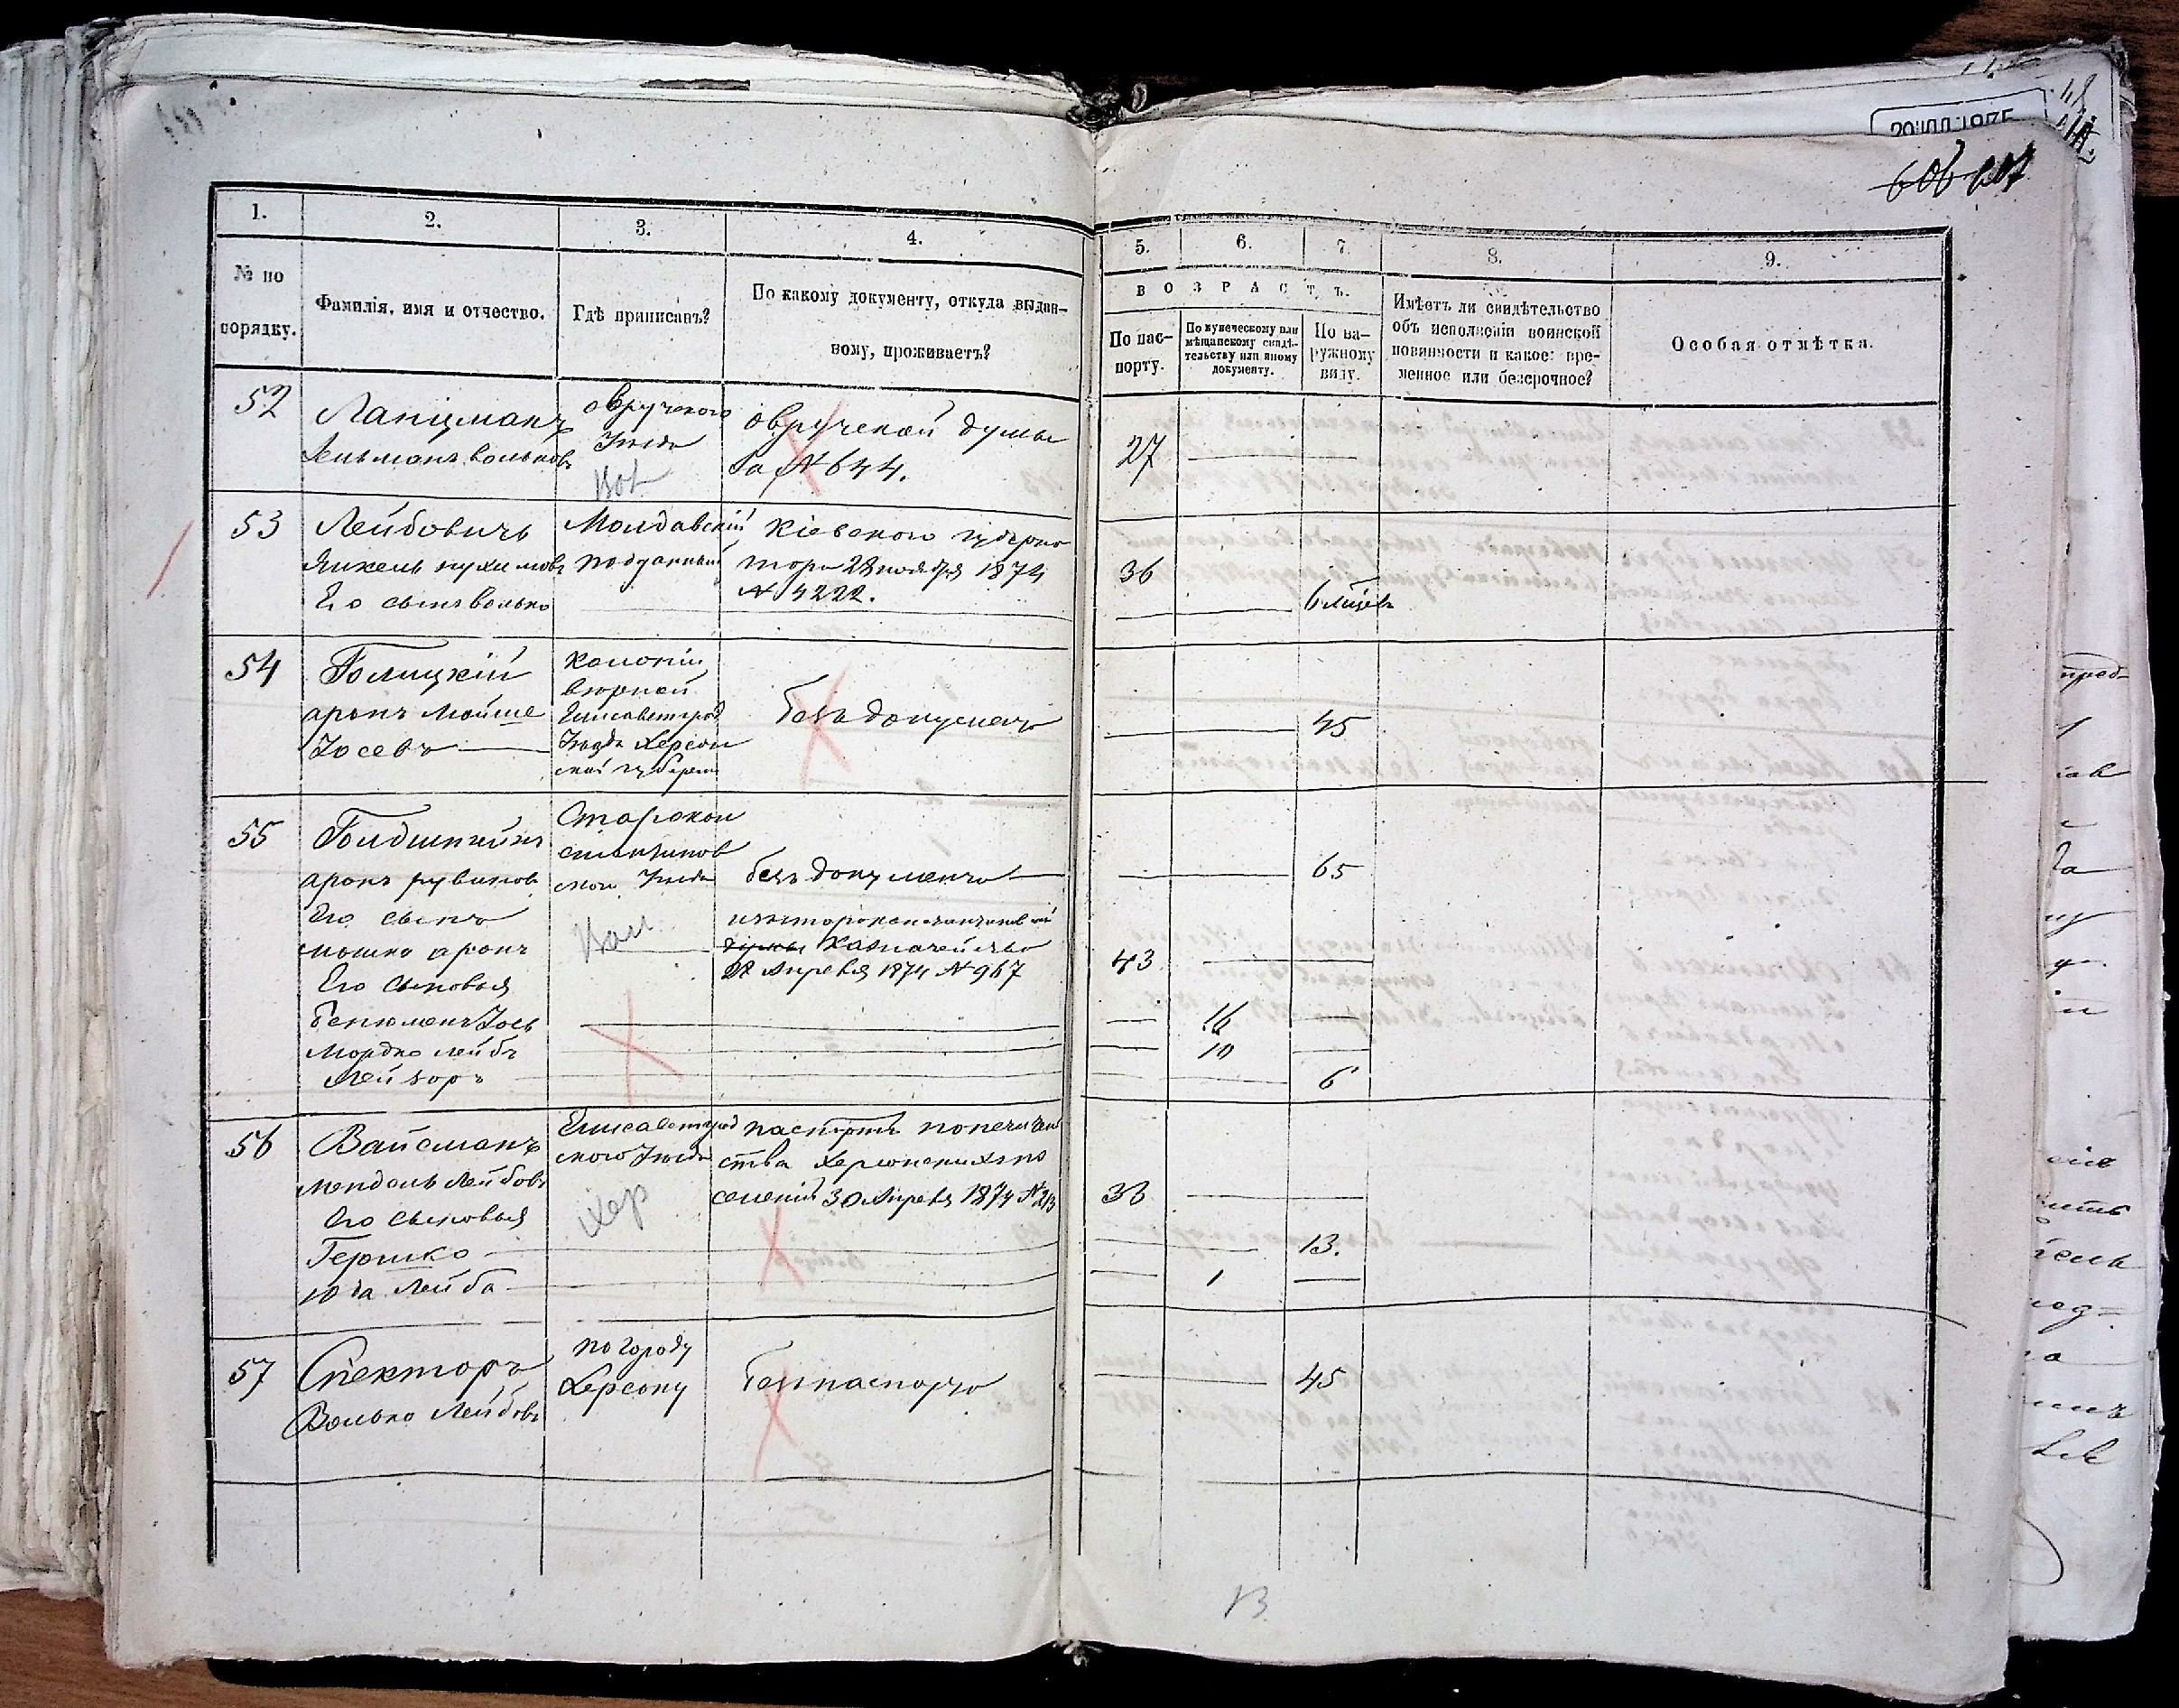 606 607
1. 2. 3. 4. 5. 6. 7. 8. 9.
№ по порядку.
Фамилія, имя и отчество.
Гдѣ приписанъ?
По какому документу, откуда выдан-
ному, проживаетъ?
ВОЗРАСТЪ.
По пас-
порту.
По купеческому или
мѣщанскому свидѣ-
тельству или иному
документу.
По на-
ружному
виду.
Имѣетъ ли свидѣтельство
объ исполненіи воинской
повинности и какое: вре-
менное или безсрочное?
Особая отмѣтка.
52
Лапицманъ
Овручскаго
Уѣзда
Вол
Овручской думы
За № 644.
27
53
Лейбовичъ
Янкель Нухимовъ
Его сынъ Волько
Молдавскій
подданный
Кіевскаго губерна
тора 28 ноября 1874
№ 4222.
36
6 мѣсяцевъ
54
Голицкій
Аронъ Мойше
Іосевъ
Колоніи
Елисаветград
Уѣзда Херсон
ской губерніи
безъ документа
45
55
Аронъ Рувинов
Его сынъ
Мошко Аронъ
Его сыновья
Бенюменъ Іось
Мордко Лейбъ
Лейзоръ
Старокон
стантинов
скаго Уѣзда
Вол
безъ документа
Казначейство
22 Апреля 1874 № 967
65
43
16
10
6
56
Вайсманъ
Мендель Лейбовъ
Его сыновья
Гершко
Лейба
Елисаветград
скаго Уѣзда
Хер
паспортъ попечитель
ства Херсонскихъ по
селеній 30 Апреля 1874 № 213
36
13.
1
57
Спекторъ
Волько Лейбовъ
по городу
Херсону
безъ паспорта
45
13